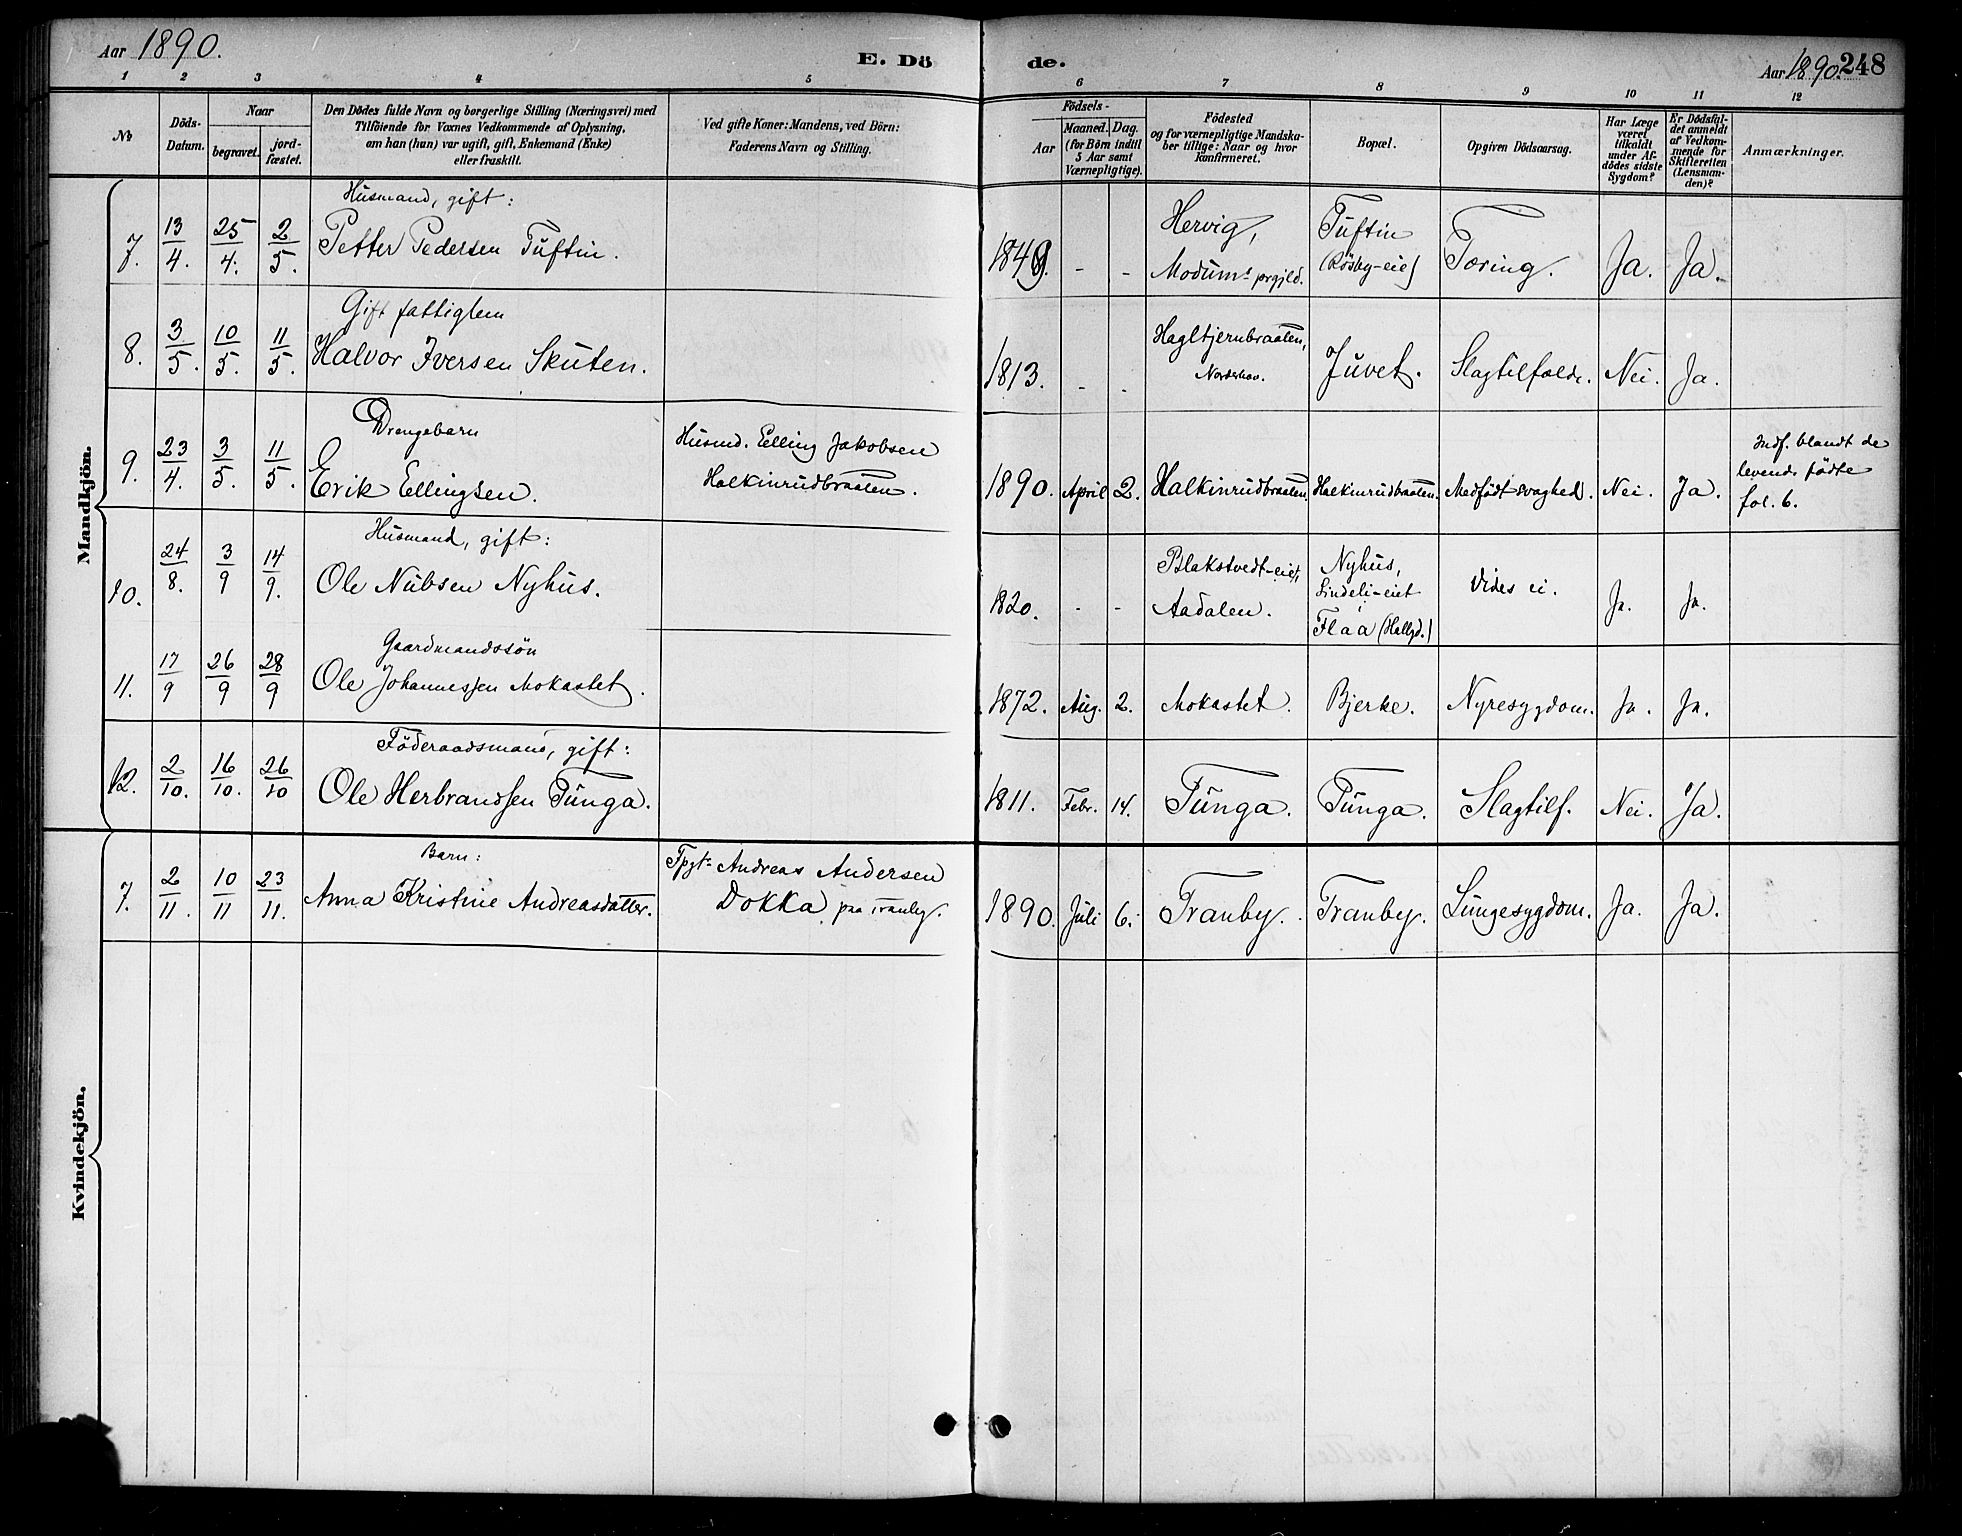 Aar 1890.
E. Döde.
Aar 1890. 248
1 2 3 4 5 6 7 8 9 10 11 12
No
Döds-Datum.
Naar
begravet.
jordfæstet.
Den Dödes fulde Navn og borgerlige Stilling (Næringsvei) med
Tilföiende for Voxnes Vedkommende af Oplysning,
om han (hun) var ugift, gift, Enkemand (Enke)
eller fraskilt.
Ved gifte Koner: Mandens, ved Börn:
Faderens Navn og Stilling.
Födsels-
Aar
Maaned. Dag.
(for Börn indtil
5 Aar samt
Værnepligtige).
Födested
og for værnepligtige Mandska-
ber tillige: Naar og hvor
konfirmeret.
Bopæl.
Opgiven Dödsaarsag.
Har Læge
været
tilkaldt
under Af-
dödes sidste
Sygdom?
Er Dödsfal-
det anmeldt
af Vedkom-
mende for
Skifteretten
(Lensman-
den)?
Anmærkninger.
Mandkjön.
Husmand, gift:
7. 13/4. 25/4. 2/5. Petter Pedersen Tuftin. 1849. - - Hervig, Modums prgjld. Tuftin (Rösby-eie) Tæring. Ja. Ja.
Gift fattiglem
8. 3/5. 10/5. 11/5. Halvor Iversen Skuten. 1813. - - Hagltjernbraaten, Norderhov. Juvet. Slagtilfælde. Nei. Ja.
Drengebarn
9. 23/4. 3/5. 11/5. Erik Ellingsen. Husmd. Elling Jakobsen Halkinrudbraaten. 1890. April 2. Halkinrudbraaten. Halkinrudbraaten. Medfödt svaghed. Nei. Ja. Indf. blandt de levende födte fol. 6.
Husmand, gift:
10. 24/8. 3/9 14/9. Ole Nubsen Nyhus. 1820. - - Blakstvedt-eiet, Aadalen. Nyhus, Lindeli-eiet i Flaa (Hallgd.) Vides ei. Ja. Ja.
Gaardmandssön
11. 17/9 26/9 28/9 Ole Johannessen Mokastet. 1872. Aug. 2. Mokastet. Bjerke. Nyresygdom. Ja. Ja.
Föderaadsmand, gift:
12. 2/10. 16/10. 26/10 Ole Herbrandsen Tunga. 1811. Febr. 14. Tunga. Tunga. Slagtilf. Nei. Ja.
Kvindekjön.
Barn:
7. 2/11. 10/11 23/11. Anna Kristine Andreasdatter. Fpgts Andreas Andersen Dokka paa Tranby. 1890. Juli 6. Tranby. Tranby. Lungesygdom. Ja. Ja.